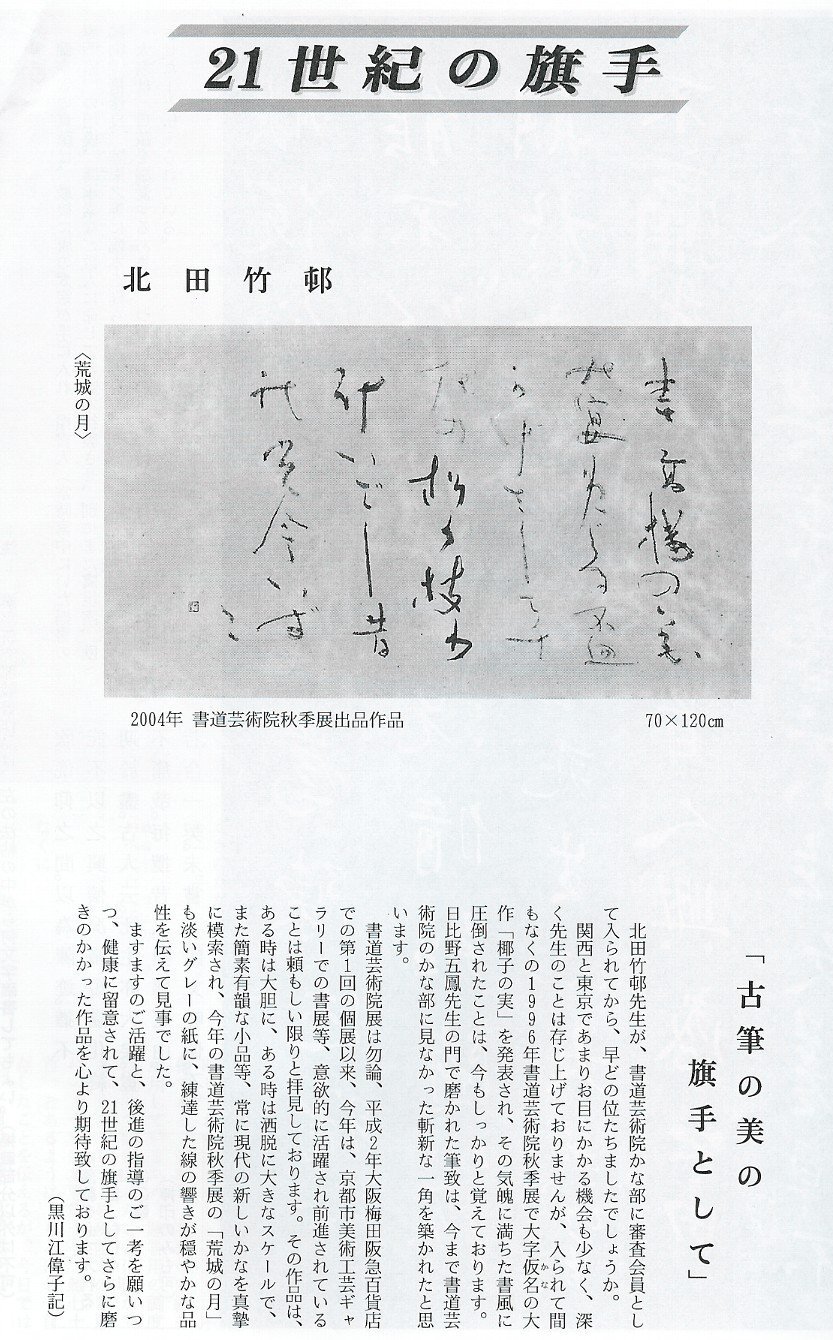 21世紀の旗手
北田竹邨
春高楼の花
の宴めぐる盃
かげさして千
代の松が枝わ
けいでし昔
の光今いず
こ
〈荒城の月〉
2004年 書道芸術院秋季展出品作品
70×120㎝
「古筆の美の
旗手として」
北田竹邨先生が、書道芸術院かな部に審査会員とし
て入られてから、早どの位たちましたでしょうか。
関西と東京であまりお目にかかる機会も少なく、深
く先生のことは存じ上げておりませんが、入られて間
もなくの1996年書道芸術院秋季展で大字仮名(かな)の大
作「椰子の実」を発表され、その気魄に満ちた書風に
圧倒されたことは、今もしっかりと覚えております。
日比野五鳳先生の門で磨かれた筆致は、今まで書道芸
術院のかな部に見なかった斬新な一角を築かれたと思
います。
書道芸術院展は勿論、平成2年大阪梅田阪急百貨店
での第1回の個展以来、今年は、京都市美術工芸ギャ
ラリーでの書展等、意欲的に活躍され前進されている
ことは頼もしい限りと拝見しております。その作品は、
ある時は大胆に、ある時は洒脱に大きなスケールで、
また簡素有韻な小品等、常に現代の新しいかなを真摯
に模索され、今年の書道芸術院秋季展の「荒城の月」
も淡いグレーの紙に、練達した線の響きが穏やかな品
性を伝えて見事でした。
ますますのご活躍と、後進の指導のご一考を願いつ
つ、健康に留意されて、21世紀の旗手としてさらに磨
きのかかった作品を心より期待致しております。
(黒川江偉子記)